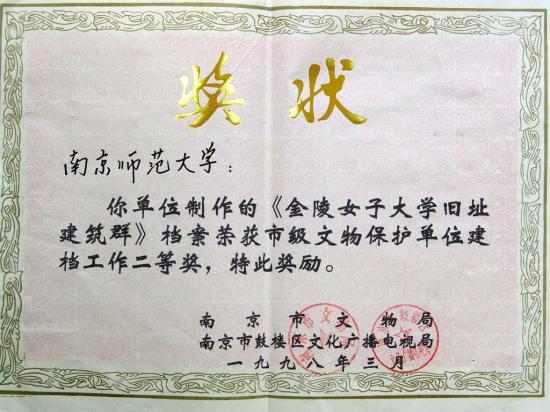 奖状
南京师范大学：
你单位制作的《金陵女子大学旧址
建筑群》档案荣获市级文物保护单位建
档工作二等奖，特此奖励。
南京市文物局
南京市鼓楼区文化广播电视局
一九九八年三月